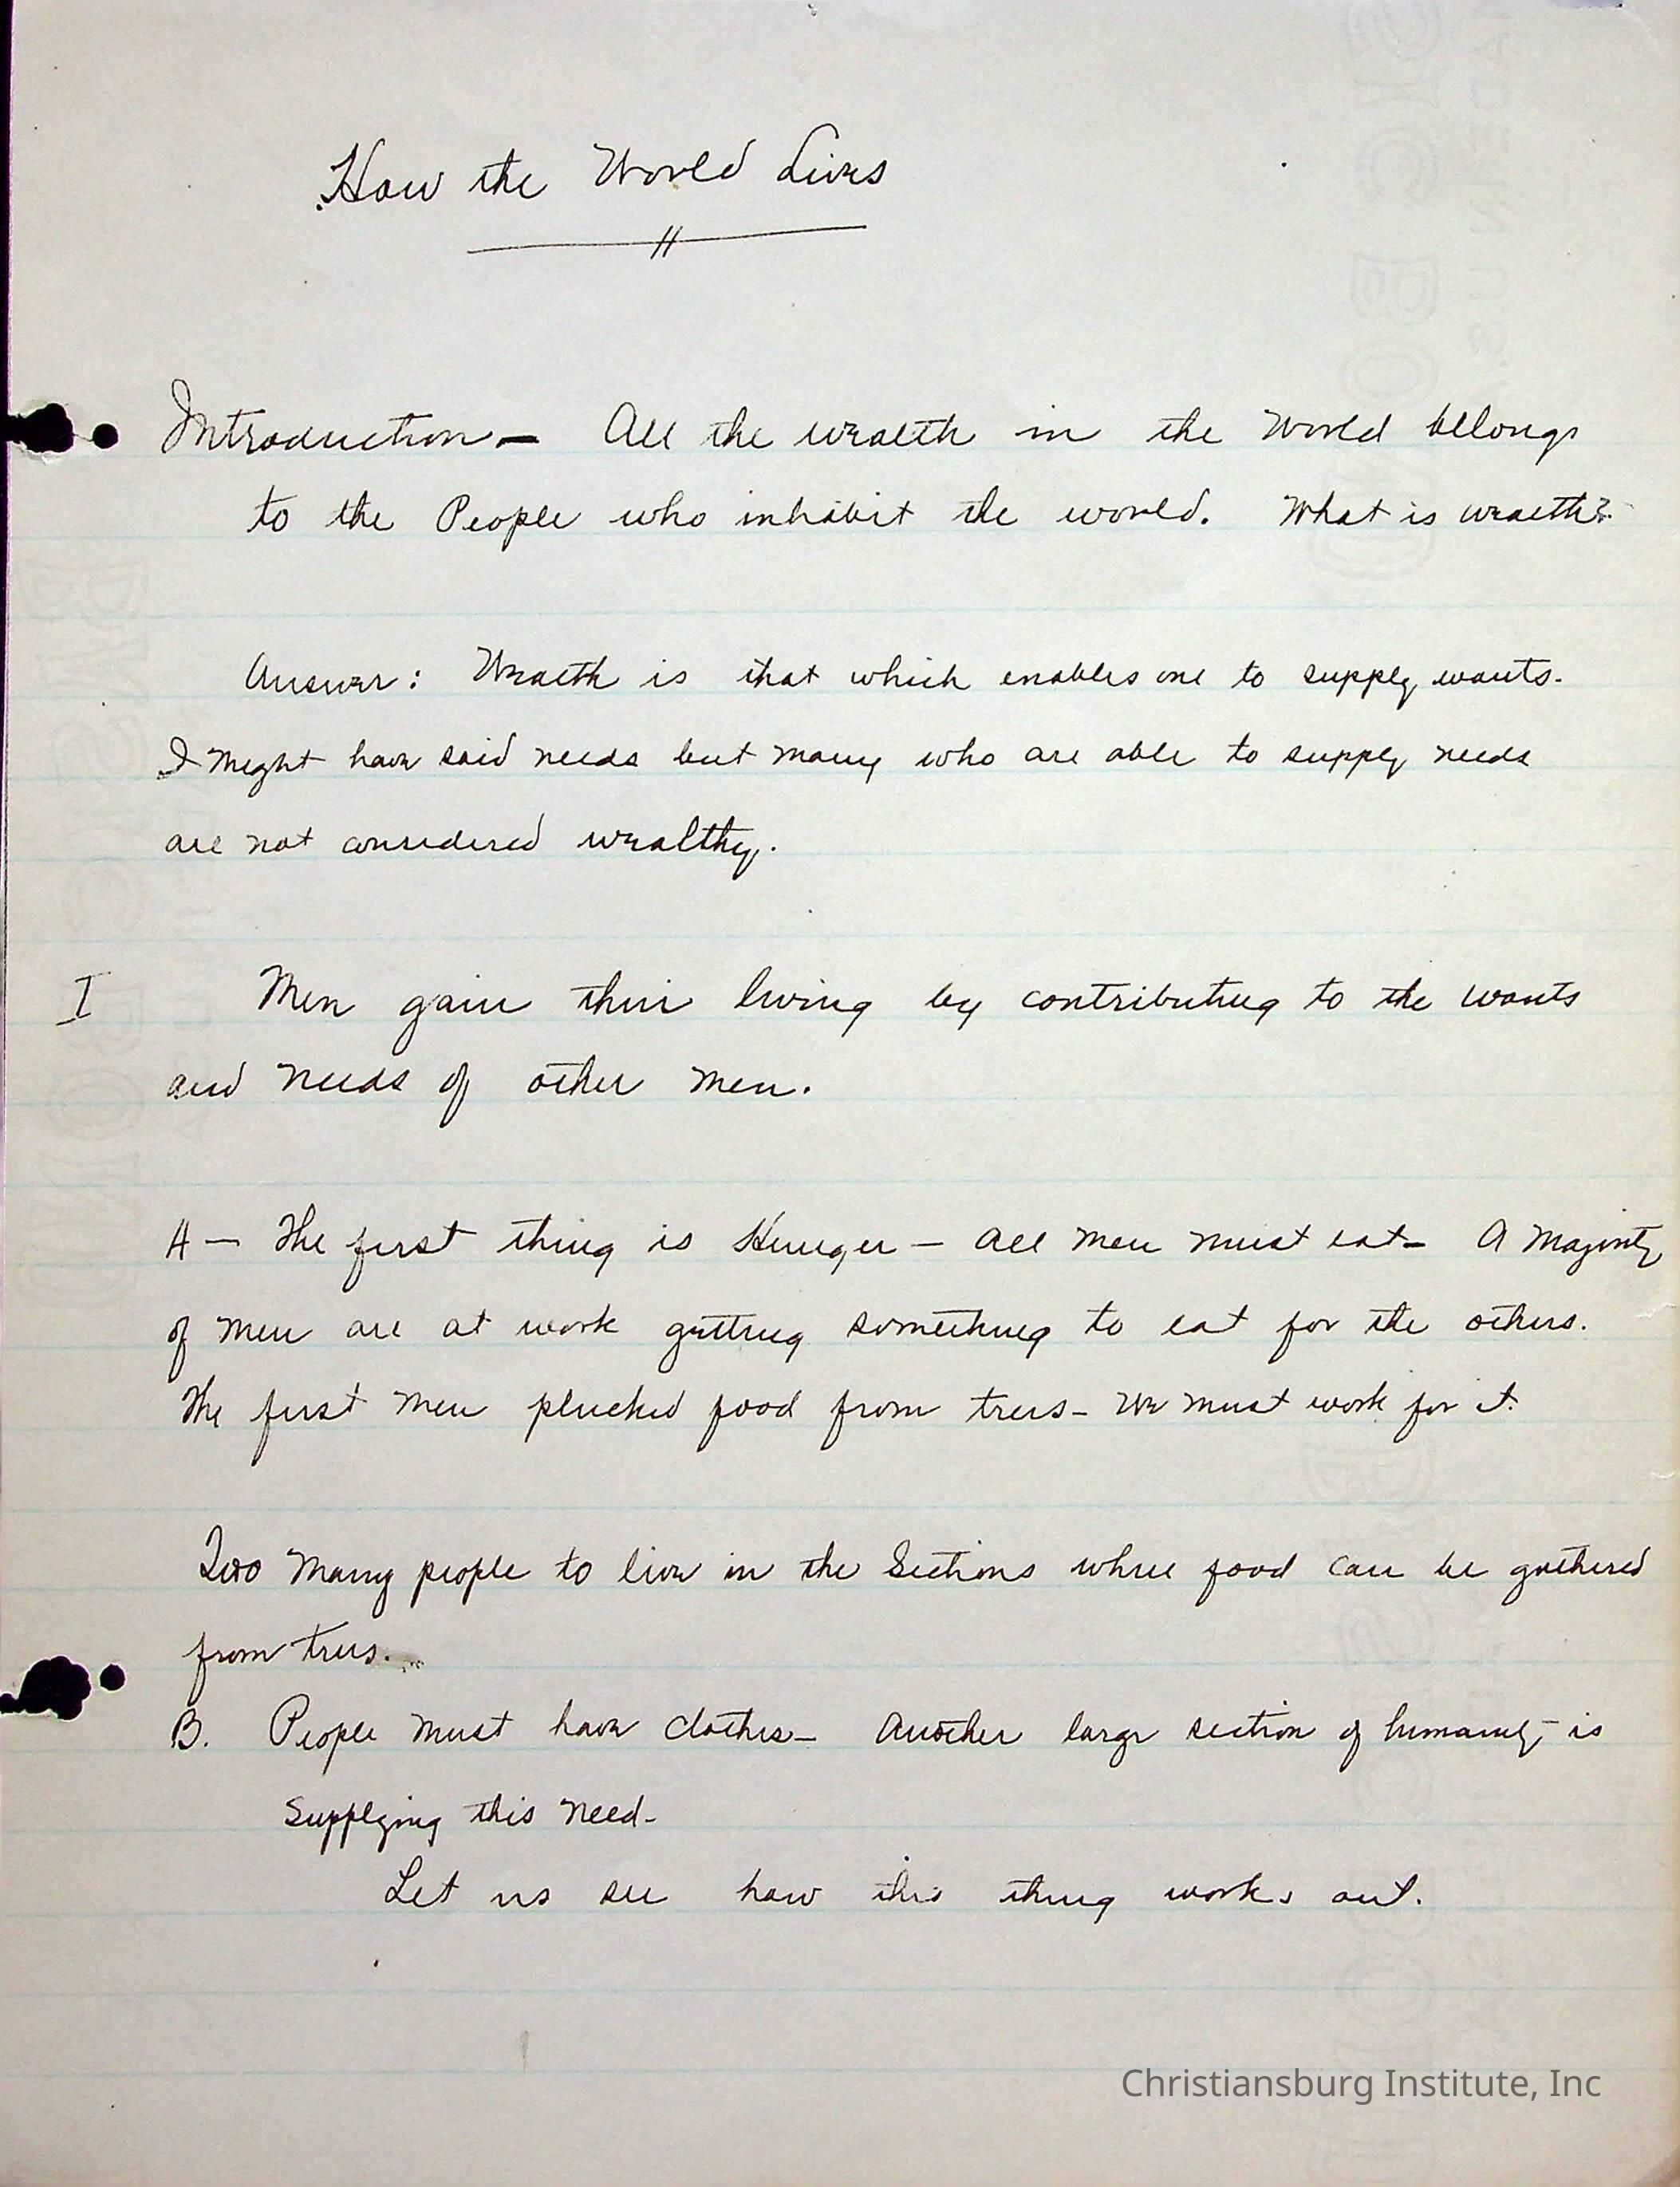 How the World Lives
Introduction — All the wealth in the World belongs
to the People who inhabit the world. What is wealth?
Answer: Wealth is that which enables one to supply wants.
I might have said needs but many who are able to supply needs
are not considered wealthy.
I Men gain their living by contributing to the wants
and needs of other men.
A — The first thing is Hunger — All men must eat — A Majority
of men are at work getting something to eat for the others.
The first men plucked food from trees — We must work for it.
Too many people to live in the Sections where food can be gathered
from trees.
B. People must have clothes — Another large section of humanity is
supplying this need —
Let us see how this thing works out.
Christiansburg Institute, Inc